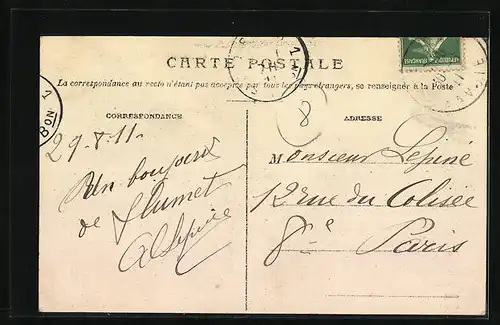 CARTE POSTALE
La correspondance au recto n'étant pas acceptée par tous les pays étrangers, se renseigner à la Poste
CORRESPONDANCE
ADRESSE
8
29-8-11-
Un bonjour
de Flumet
A Lepine
Monsieur Lepine
12 rue du Colisée
8è
Paris